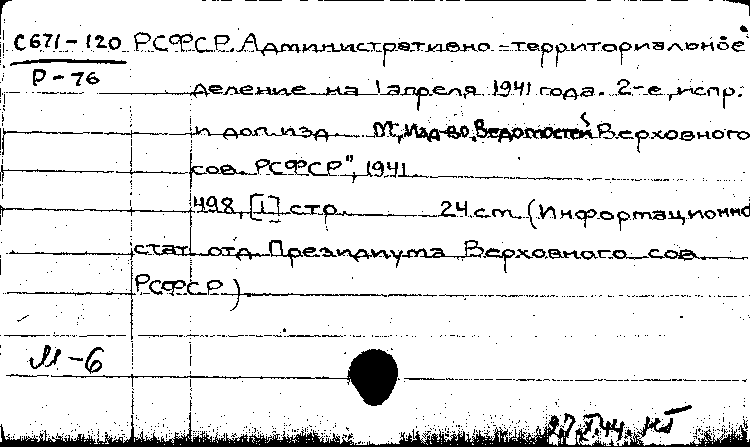 С671-120 РСФСР. Административно-территориальное
Р-76
деление на 1 апреля 1941 года. 2-е, испр.
и доп. изд. М., Изд-во "Ведомостей Верховного
сов. РСФСР", 1941.
498, [1] стр. 24 см. (Информационно
стат. отд. Президиума Верховного сов.
РСФСР).
М-6
27.X.44.